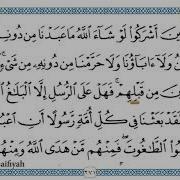 ـين أَشْرَكُوا۟ لَوْ شَآءَ ٱللَّهُ مَا عَبَدْنَا مِن دُونِهِ
وَلَآ ءَابَآؤُنَا وَلَا حَرَّمْنَا مِن دُونِهِۦ مِن شَىْءٍ
مِن قَبْلِهِمْ فَهَلْ عَلَى ٱلرُّسُلِ إِلَّا ٱلْبَلَٰغُ
بَعَثْنَا فِى كُلِّ أُمَّةٍ رَّسُولًا أَنِ ٱعْبُدُ
ٱلطَّٰغُوتَ فَمِنْهُم مَّنْ هَدَى ٱللَّهُ وَمِنْهُم
aifiyah